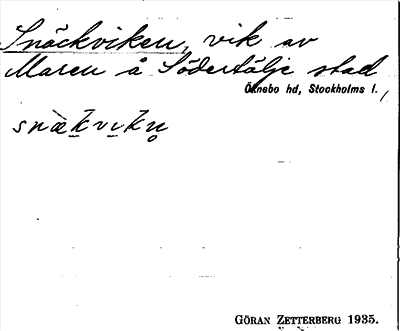 Snäckviken, vik av
Maren å Södertälje stad
Öknebo hd, Stockholms l.
snä̀kvikn̥
GÖRAN ZETTERBERG 1935.